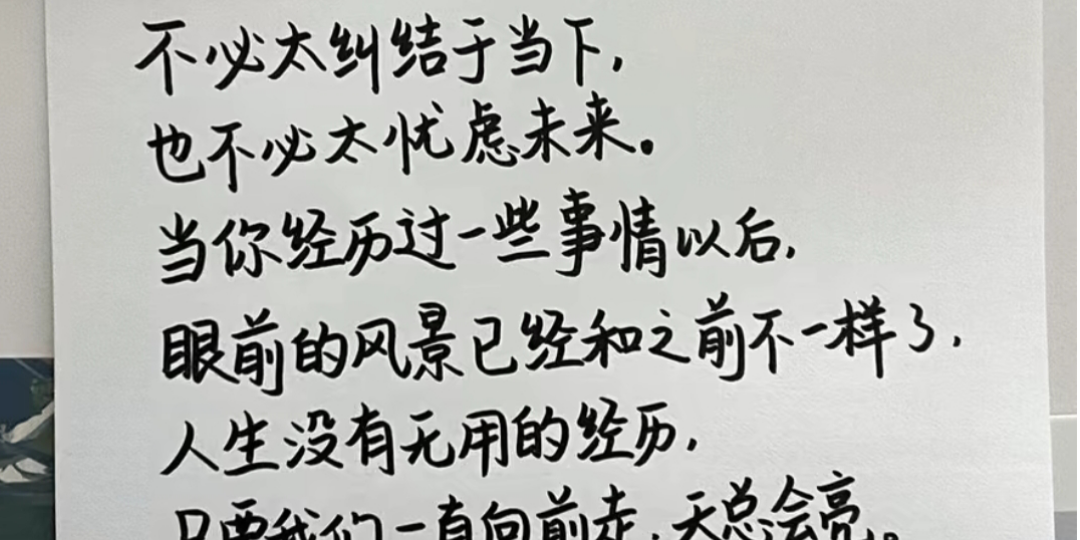 不必太纠结于当下,
也不必太忧虑未来。
当你经历过一些事情以后,
眼前的风景已经和之前不一样了.
人生没有无用的经历,
只要我们一直向前走,天总会亮。